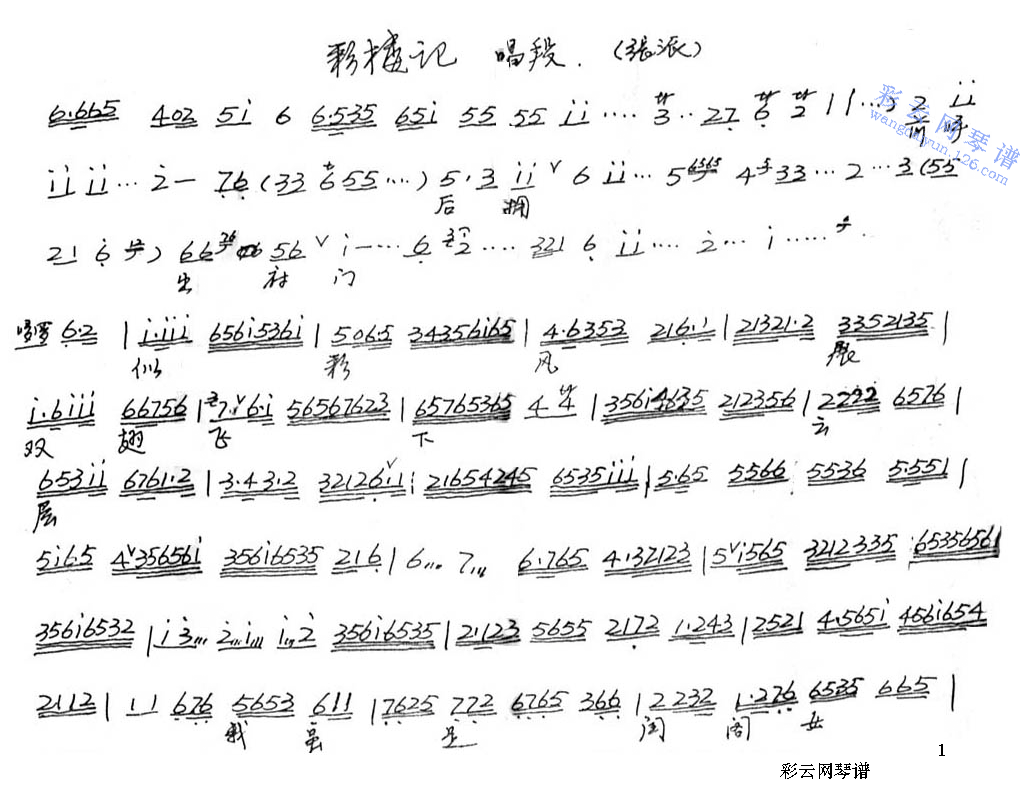 彩楼记 唱段. (張派)
6.665 402 5i 6 6.535 65i 55 55 ii ···· 3 ·· 27 6 2 11 ··· 2 ii
前 呼
彩云网琴谱
wangcaiyun.126.com
ii ii ··· 2 — 76 (33 6 55 ····) 5.3 ii ˅ 6 ii ··· 5 6365 4 33 ··· 2 ··· 3 (55
后 拥
21 6 ) 66 56 ˅ i — ··· 6 2 ···· 321 6 ii ···· 2 ··· i ·····
出 府 门
6.2 | i.iii 656i536i | 5065 34356i65 | 4.6353 216.1 | 21321.2 3352135 |
似 彩 风 展
i.6iii 66756 | 7.˅6.i 56567623 | 65765365 4 4 | 356i4635 212356 | 2222 6576 |
双 翅 飞 下 云
653ii 6761.2 | 3.43.2 32126.1 | 21654245 6535iii | 5.65 5566 5536 5.551 |
层
5i6.5 4˅35656i 356i6535 216 | 6... 7... 6.765 4.32123 | 5˅i565 3212335 6535656i
356i6532 | i3... 2...i... i...2 356i6535 | 2.123 5655 2172 1.243 | 2521 4.565i 456i654
2112 | 11 676 5653 611 | 7625 772 6765 366 | 2232 1.276 6535 665 |
我 虽 是 闺 阁 女
1
彩云网琴谱